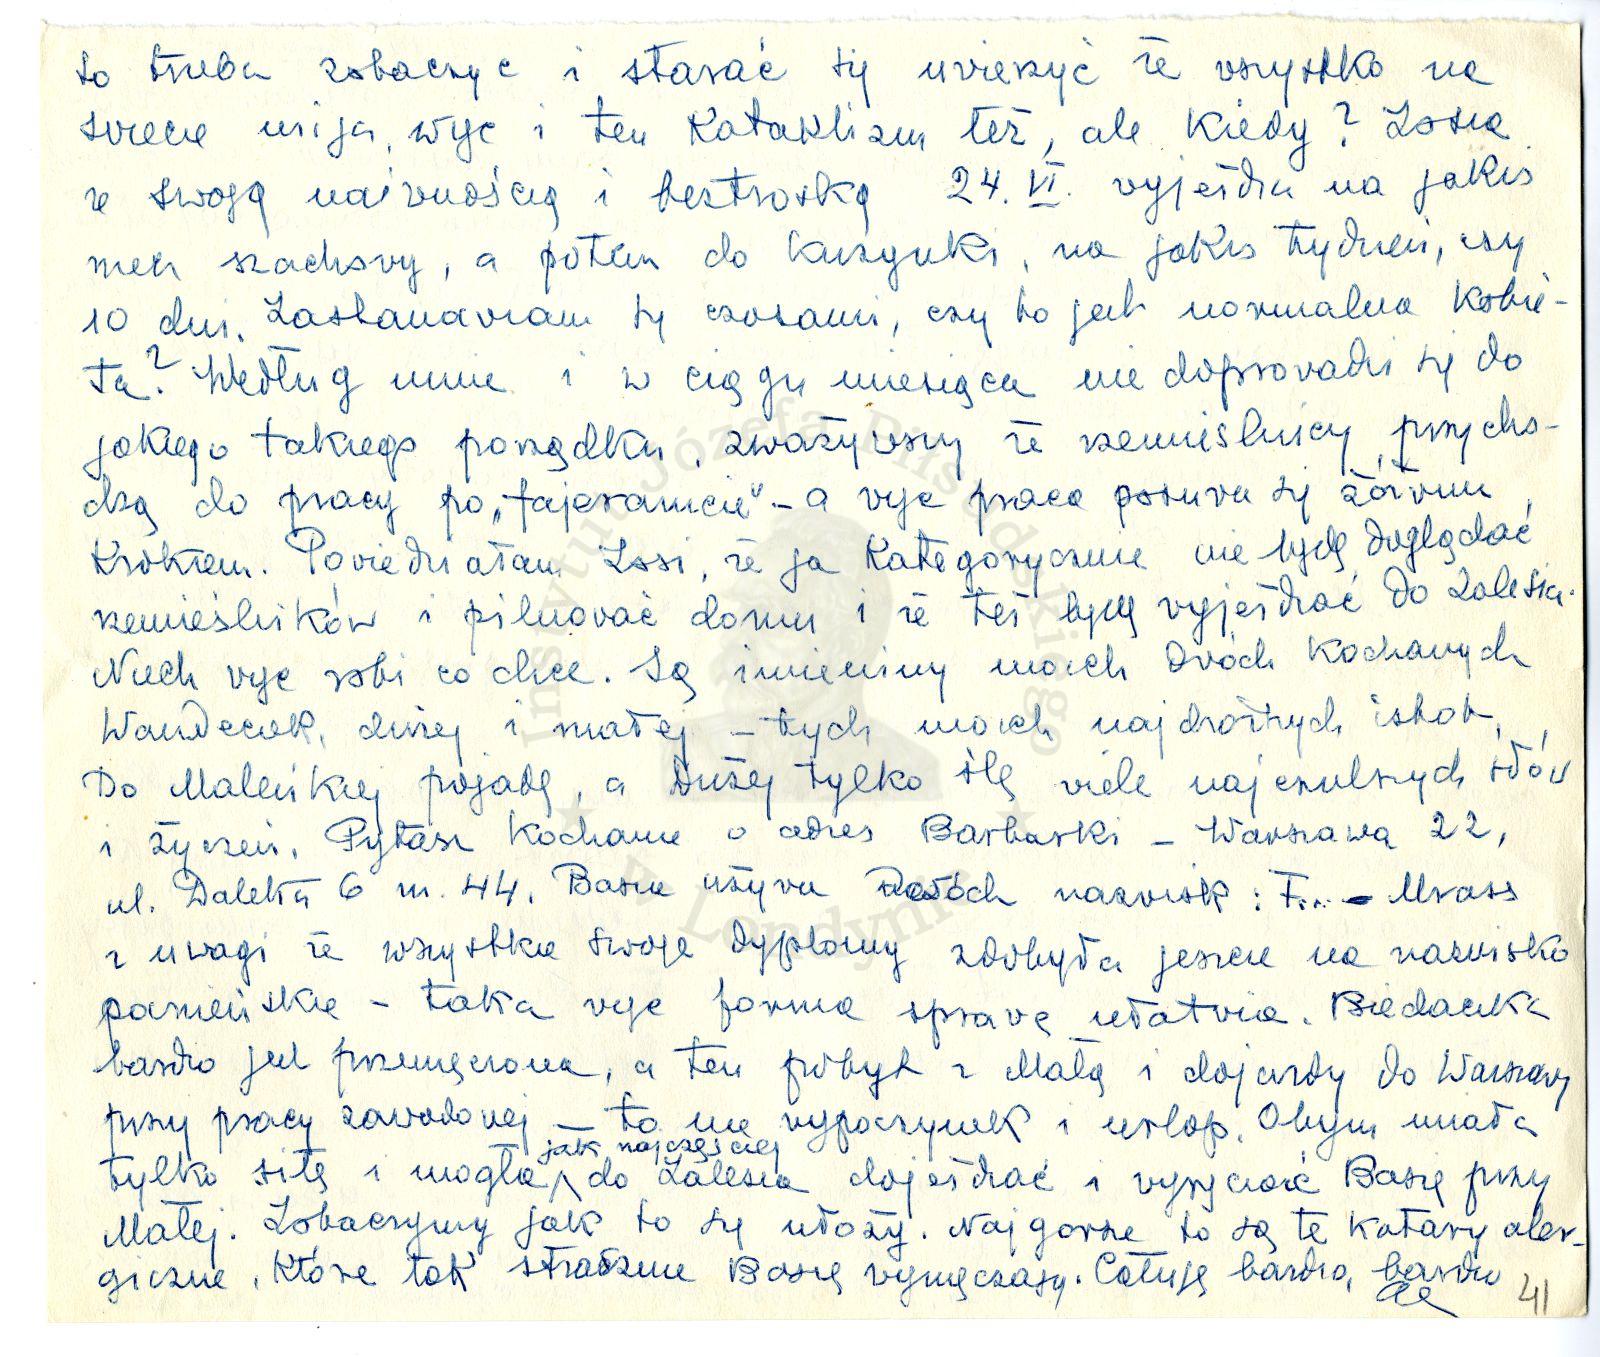 to trzeba zobaczyć i starać się uwierzyć że wszystko na
świecie mija, więc i ten Kataklizm też, ale kiedy? Zosia
ze swoją naiwnością i beztroską 24. VI. wyjeżdża na jakiś
mecz szachowy, a potem do kuzynki, na jakiś tydzień, czy
10 dni. Zastanawiam się czasami, czy to jest normalna Kobie-
ta? Według mnie i w ciągu miesiąca nie doprowadzi się do
jakiego takiego porządku, zważywszy że rzemieślnicy przycho-
dzą do pracy po „fajerancie" – a więc praca posuwa się żółwim
Krokiem. Powiedziałam Zosi, że ja Kategorycznie nie będę doglądać
rzemieślników i pilnować domu i że też będę wyjeżdżać do Zalesia.
Niech więc robi co chce. Są imieniny moich Dwóch Kochanych
Wandeczek, dużej i małej – tych moich najdroższych istot.
Do Maleńkiej pojadę, a Dużej tylko ślę wiele najczulszych słów
i życzeń. Pytasz Kochanie o adres Barbarki – Warszawa 22,
ul. Daleka 6 m. 44. Basia używa Dwóch nazwisk: F... – Mrass
z uwagi że wszystkie swoje dyplomy zdobyła jeszcze na nazwisko
panieńskie – taka więc forma sprawę ułatwia. Biedaczka
bardzo jest przemęczona, a ten pobyt z Małą i dojazdy do Warszawy
przy pracy zawodowej – to nie wypoczynek i urlop. Obym miała
tylko siłę i mogła jak najczęściej do Zalesia dojeżdżać i wyręczać Basię przy
Małej. Zobaczymy jak to się ułoży. Najgorsze to są te katary aler-
giczne, Które tak strasznie Basię wymęczają. Całuję bardzo, bardzo
41
Instytut Józefa Piłsudskiego
w Londynie